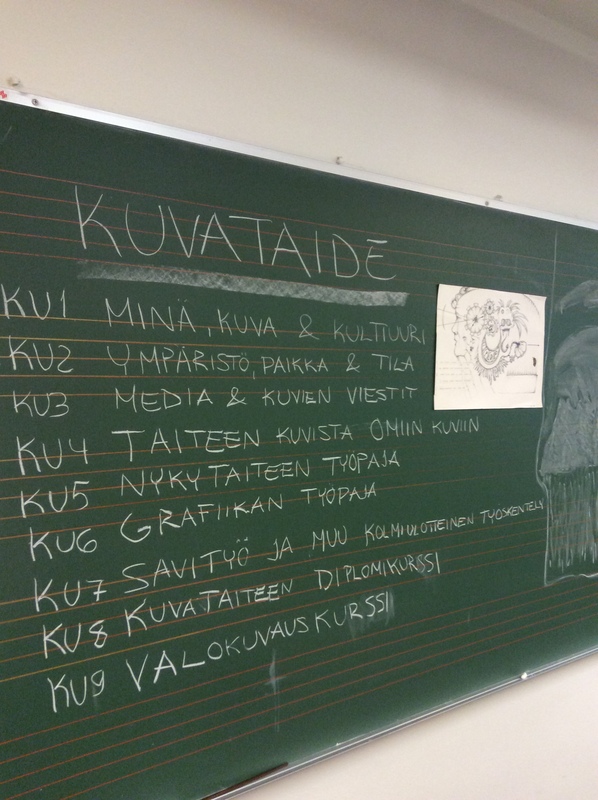 KUVATAIDE
KU1 MINÄ, KUVA & KULTTUURI
KU2 YMPÄRISTÖ, PAIKKA & TILA
KU3 MEDIA & KUVIEN VIESTIT
KU4 TAITEEN KUVISTA OMIIN KUVIIN
KU5 NYKYTAITEEN TYÖPAJA
KU6 GRAFIIKAN TYÖPAJA
KU7 SAVITYÖ JA MUU KOLMIULOTTEINEN TYÖSKENTELY
KU8 KUVATAITEEN DIPLOMIKURSSI
KU9 VALOKUVAUSKURSSI